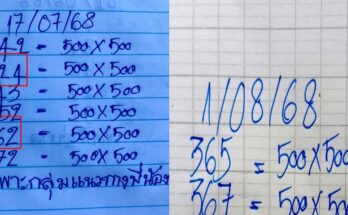 17/07/68
42 = 500X500
24 = 500X500
= 500X500
59 = 500X500
62 = 500X500
72 = 500X500
พาะกลุ่มแนวทางพี่น้อง
1/08/68
365 = 500X500
367 = 500X500